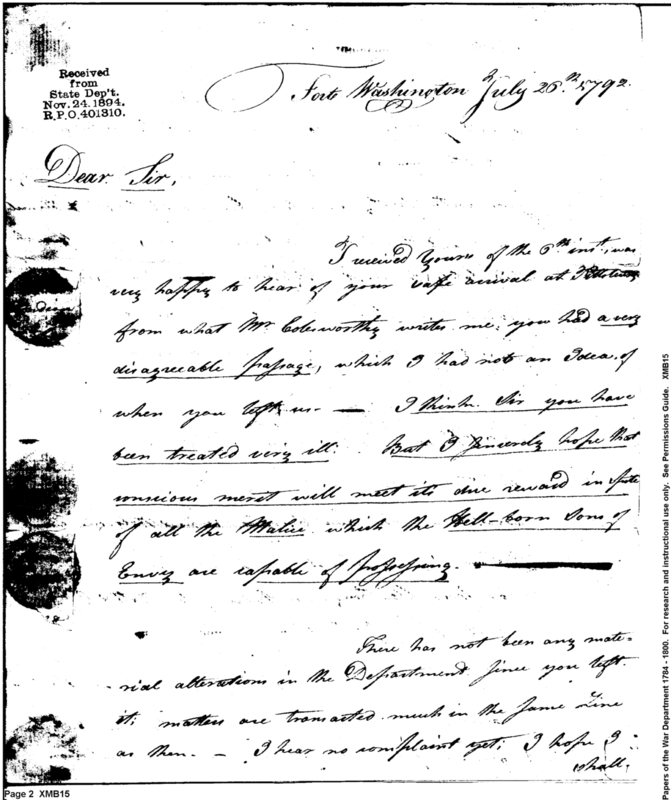 Received
from
State Dep't.
Nov. 24. 1894.
R.P.O. 401310.
Fort Washington July 26.th 1792.
Dear Sir,
I received yours of the 6th inst; was
very happy to hear of your safe arrival at
from what Mr. Colesworthy writes me, you had a very
disagreeable passage, which I had not an Idea of
when you left us. — I think Sir you have
been treated very ill. But I sincerely hope that
conscious merit will meet its due reward in spite
of all the Malice which the Hell-born sons of
Envy are capable of possessing.
There has not been any mate-
rial alterations in the Department since you left
it; matters are transacted much in the same Line
as then. — I hear no complaint yet; I hope I
shall.
Page 2 XMB15
Papers of the War Department 1784 - 1800. For research and instructional use only. See Permissions Guide. XMB15